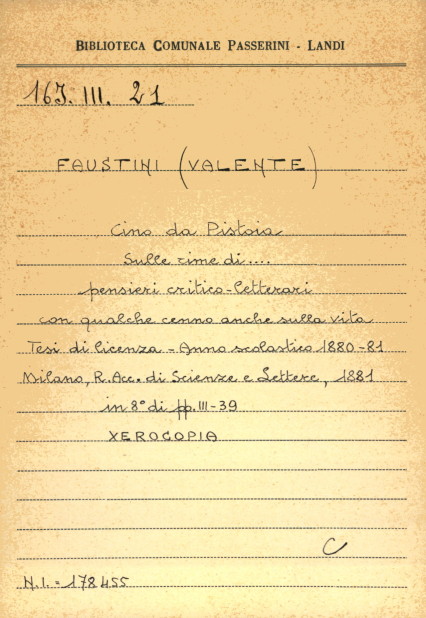 BIBLIOTECA COMUNALE PASSERINI - LANDI
16J. III. 21
FAUSTINI (VALENTE)
Cino da Pistoia
Sulle rime di....
pensieri critico-letterari
con qualche cenno anche sulla vita
Tesi di licenza - Anno scolastico 1880-81
Milano, R. Acc. di Scienze e Lettere, 1881
in 8° di pp. III-39
XEROCOPIA
C
N.I. = 178455